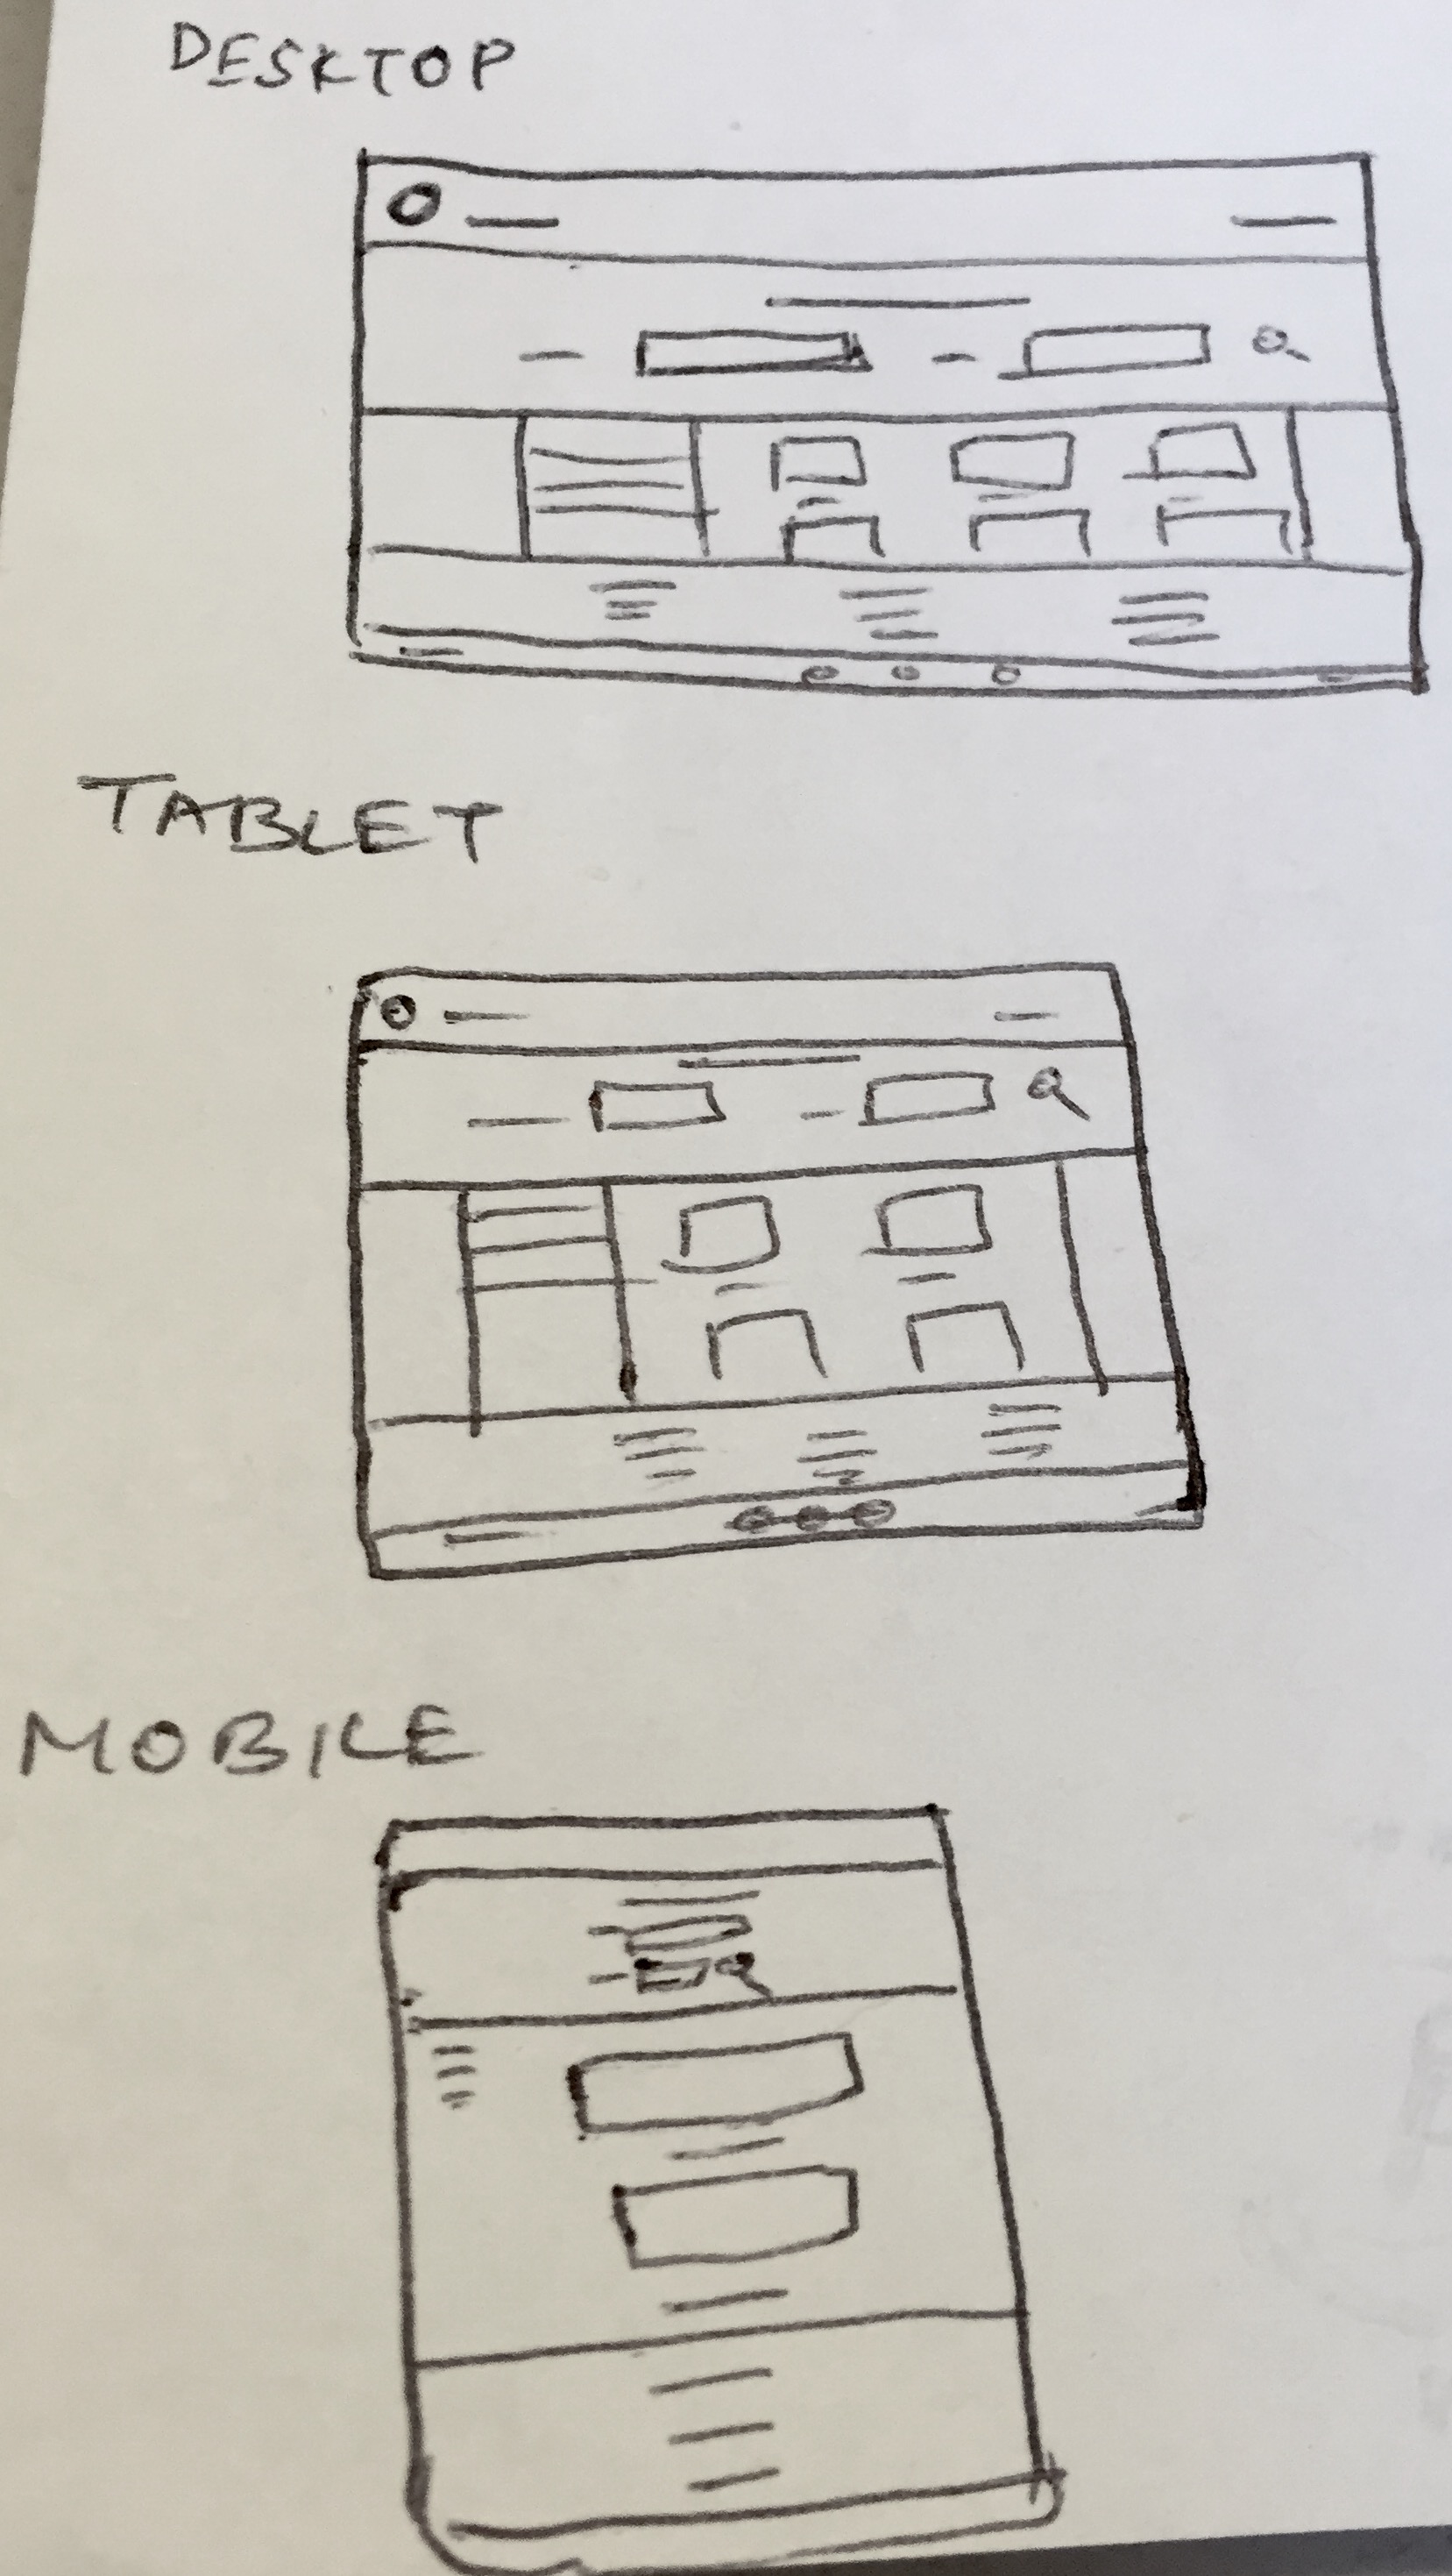 DESKTOP
TABLET
MOBILE